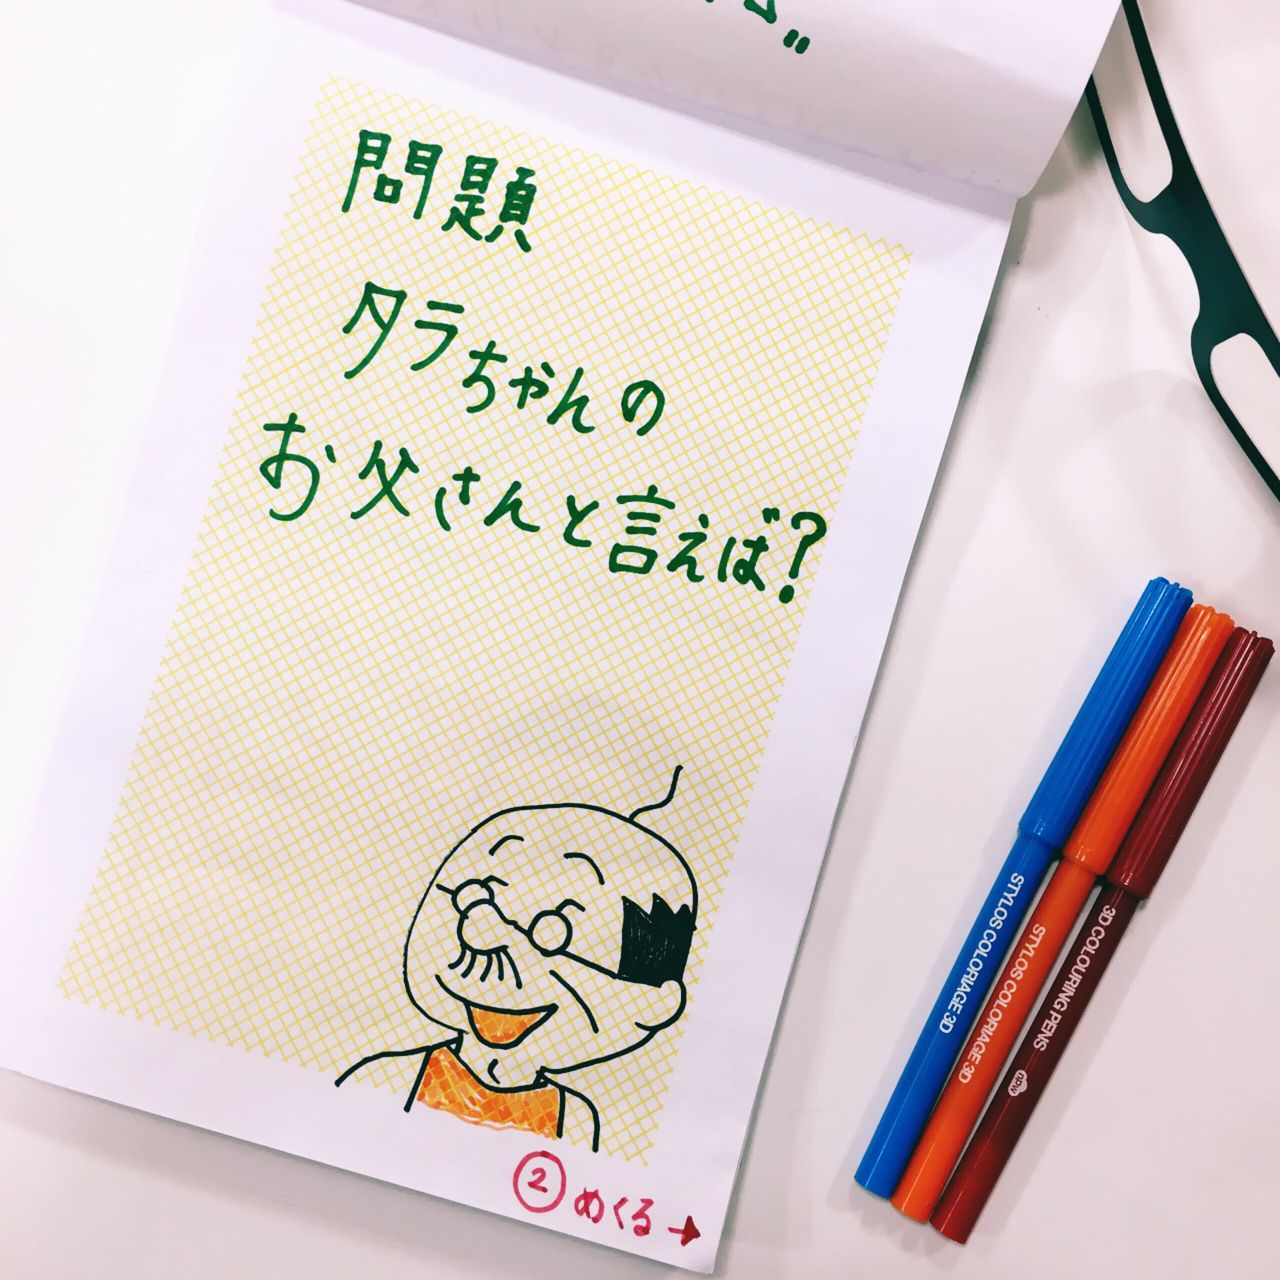 問題
タラちゃんの
お父さんと言えば?
②めくる→
STYLOS COLORIAGE 3D
STYLOS COLORIAGE 3D
3D COLOURING PENS
npw